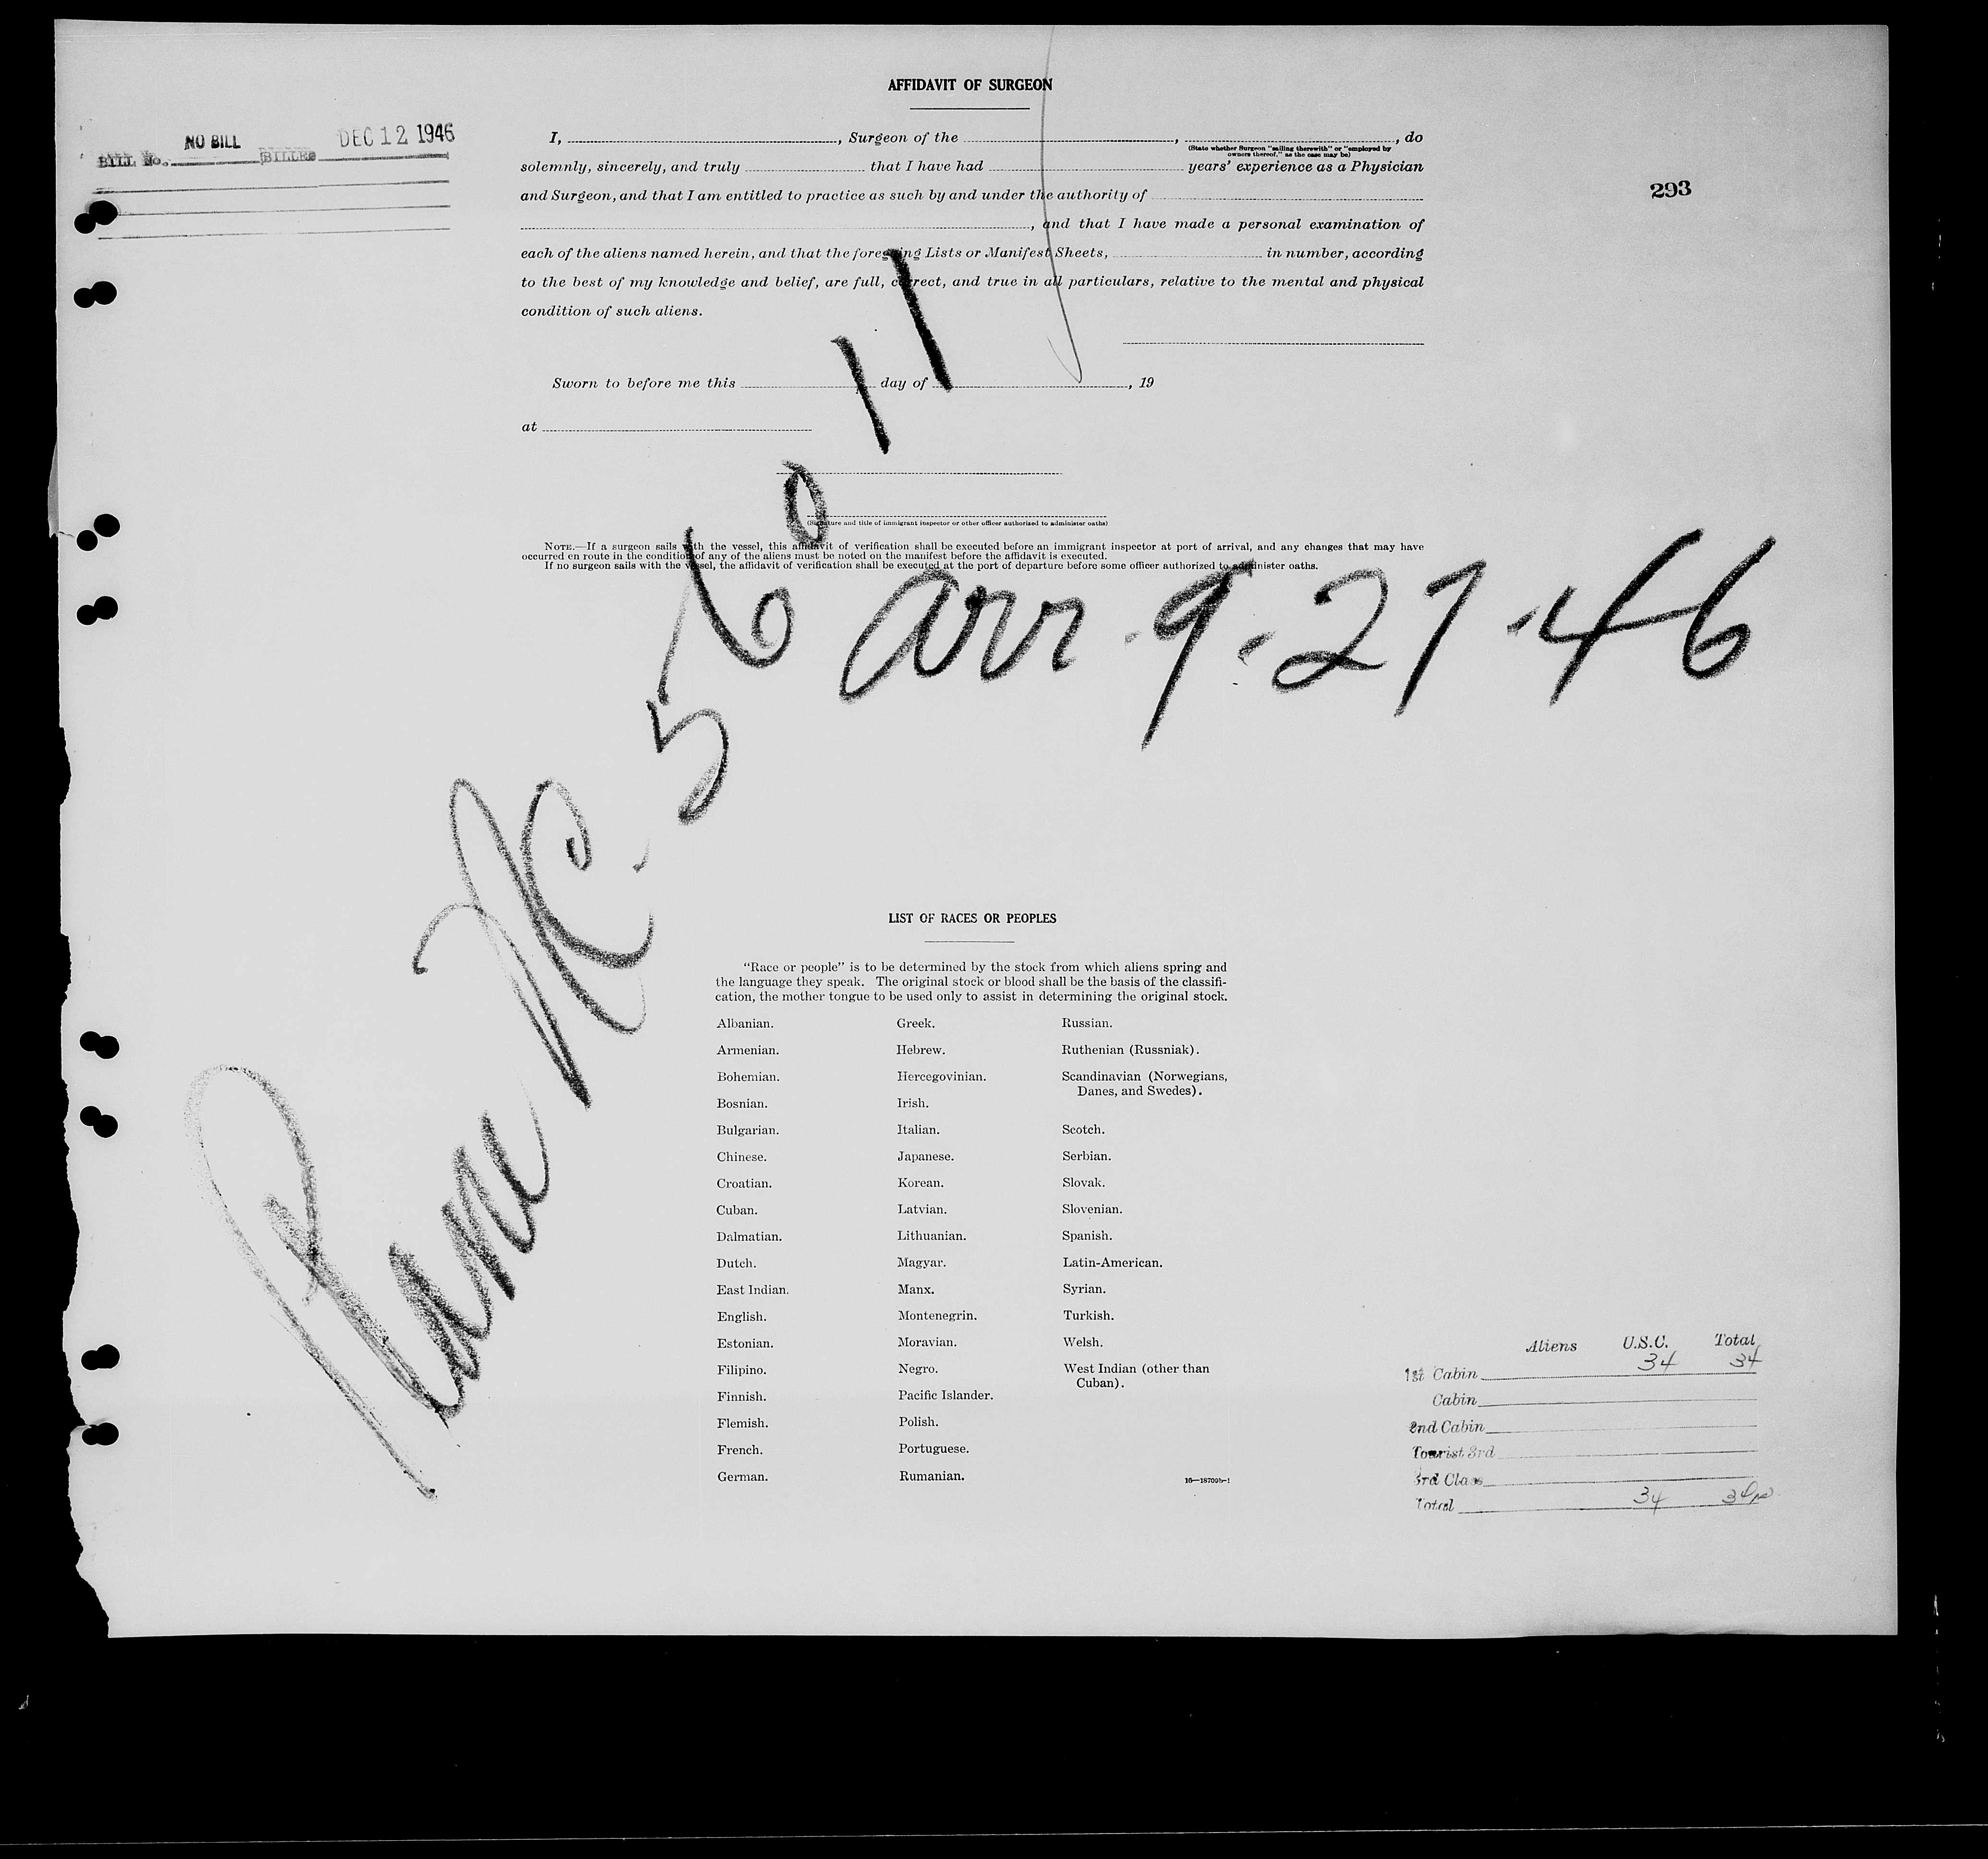 AFFIDAVIT OF SURGEON
NO BILL DEC 12 1946
BILL No. BILLED
293
I, , Surgeon of the , , do
(State whether Surgeon "sailing therewith" or "employed by
owners thereof," as the case may be)
solemnly, sincerely, and truly that I have had years' experience as a Physician
and Surgeon, and that I am entitled to practice as such by and under the authority of
, and that I have made a personal examination of
each of the aliens named herein, and that the foregoing Lists or Manifest Sheets, in number, according
to the best of my knowledge and belief, are full, correct, and true in all particulars, relative to the mental and physical
condition of such aliens.
Sworn to before me this day of , 19
at
(Signature and title of immigrant inspector or other officer authorized to administer oaths)
NOTE.—If a surgeon sails with the vessel, this affidavit of verification shall be executed before an immigrant inspector at port of arrival, and any changes that may have
occurred en route in the condition of any of the aliens must be noted on the manifest before the affidavit is executed.
If no surgeon sails with the vessel, the affidavit of verification shall be executed at the port of departure before some officer authorized to administer oaths.
Plane NC. 56011
arr. 9.27.46
LIST OF RACES OR PEOPLES
"Race or people" is to be determined by the stock from which aliens spring and
the language they speak. The original stock or blood shall be the basis of the classifi-
cation, the mother tongue to be used only to assist in determining the original stock.
Albanian.
Armenian.
Bohemian.
Bosnian.
Bulgarian.
Chinese.
Croatian.
Cuban.
Dalmatian.
Dutch.
East Indian.
English.
Estonian.
Filipino.
Finnish.
Flemish.
French.
German.
Greek.
Hebrew.
Hercegovinian.
Irish.
Italian.
Japanese.
Korean.
Latvian.
Lithuanian.
Magyar.
Manx.
Montenegrin.
Moravian.
Negro.
Pacific Islander.
Polish.
Portuguese.
Rumanian.
Russian.
Ruthenian (Russniak).
Scandinavian (Norwegians,
Danes, and Swedes).
Scotch.
Serbian.
Slovak.
Slovenian.
Spanish.
Latin-American.
Syrian.
Turkish.
Welsh.
West Indian (other than
Cuban).
Aliens U.S.C. Total
1st Cabin 34 34
Cabin
2nd Cabin
Tourist 3rd
3rd Class
Total 34 34